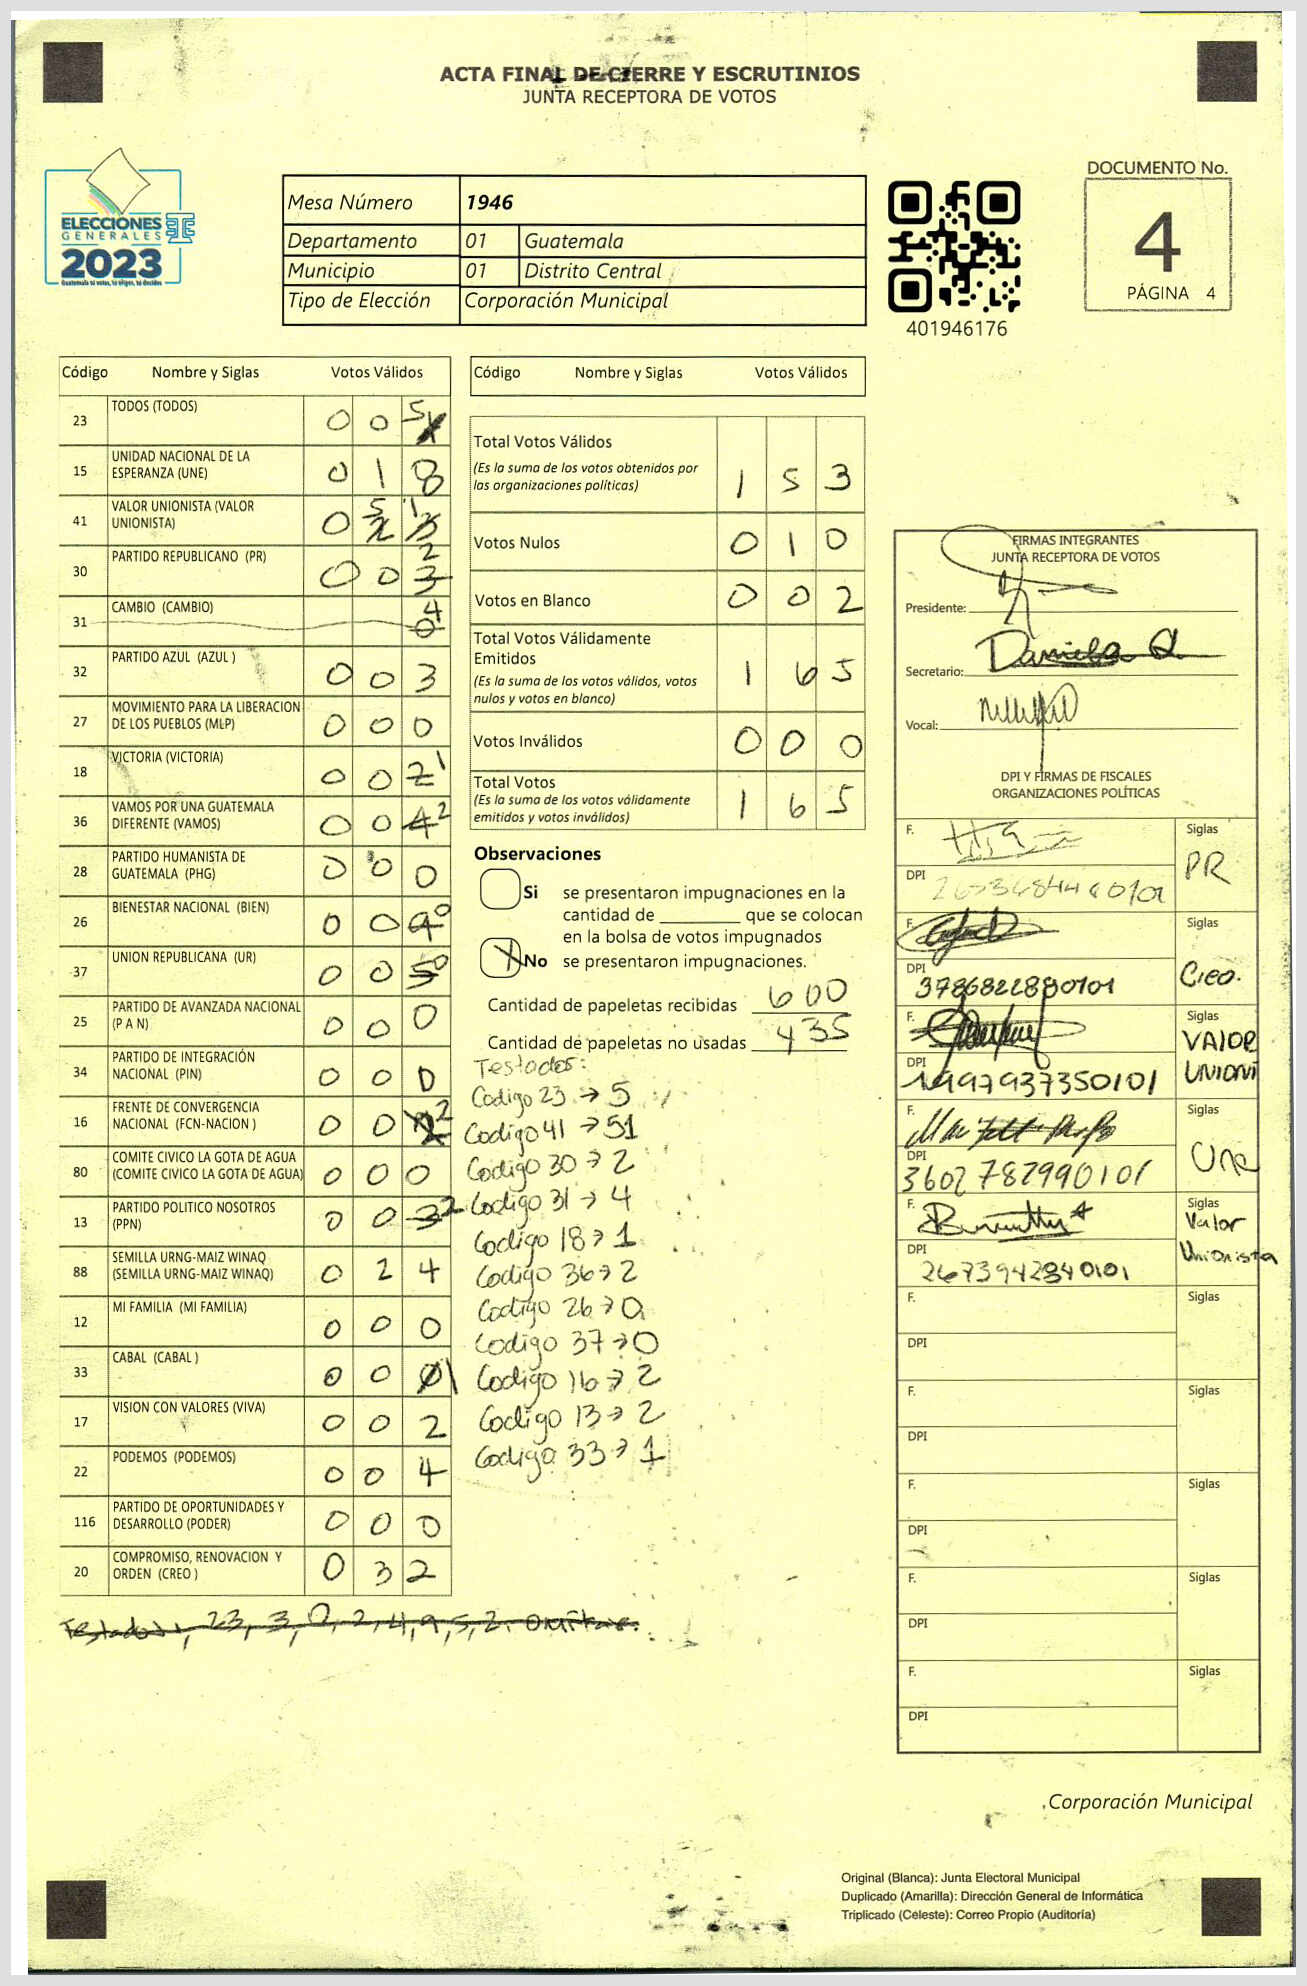 ACTA FINAL DE CIERRE Y ESCRUTINIOS
JUNTA RECEPTORA DE VOTOS
ELECCIONES
GENERALES
2023
Guatemala tú votas, tú eliges, tú decides
Mesa Número 1946
Departamento 01 Guatemala
Municipio 01 Distrito Central
Tipo de Elección Corporación Municipal
401946176
DOCUMENTO No.
4
PÁGINA 4
Código Nombre y Siglas Votos Válidos
23 TODOS (TODOS) 0 0 5
15 UNIDAD NACIONAL DE LA ESPERANZA (UNE) 0 1 8
41 VALOR UNIONISTA (VALOR UNIONISTA) 0 5 1
30 PARTIDO REPUBLICANO (PR) 0 0 3 2
31 CAMBIO (CAMBIO) 0 4
32 PARTIDO AZUL (AZUL ) 0 0 3
27 MOVIMIENTO PARA LA LIBERACION DE LOS PUEBLOS (MLP) 0 0 0
18 VICTORIA (VICTORIA) 0 0 2 1
36 VAMOS POR UNA GUATEMALA DIFERENTE (VAMOS) 0 0 4 2
28 PARTIDO HUMANISTA DE GUATEMALA (PHG) 0 0 0
26 BIENESTAR NACIONAL (BIEN) 0 0 9 0
37 UNION REPUBLICANA (UR) 0 0 5 0
25 PARTIDO DE AVANZADA NACIONAL (P A N) 0 0 0
34 PARTIDO DE INTEGRACIÓN NACIONAL (PIN) 0 0 0
16 FRENTE DE CONVERGENCIA NACIONAL (FCN-NACION ) 0 0 2
80 COMITE CIVICO LA GOTA DE AGUA (COMITE CIVICO LA GOTA DE AGUA) 0 0 0
13 PARTIDO POLITICO NOSOTROS (PPN) 0 0 3 2
88 SEMILLA URNG-MAIZ WINAQ (SEMILLA URNG-MAIZ WINAQ) 0 2 4
12 MI FAMILIA (MI FAMILIA) 0 0 0
33 CABAL (CABAL ) 0 0 0 1
17 VISION CON VALORES (VIVA) 0 0 2
22 PODEMOS (PODEMOS) 0 0 4
116 PARTIDO DE OPORTUNIDADES Y DESARROLLO (PODER) 0 0 0
20 COMPROMISO, RENOVACION Y ORDEN (CREO ) 0 3 2
Testados, 23, 3, 0, 2, 4, 9, 5, 2. omitase.
Código Nombre y Siglas Votos Válidos
Total Votos Válidos 1 5 3
(Es la suma de los votos obtenidos por
las organizaciones políticas)
Votos Nulos 0 1 0
Votos en Blanco 0 0 2
Total Votos Válidamente
Emitidos 1 6 5
(Es la suma de los votos válidos, votos
nulos y votos en blanco)
Votos Inválidos 0 0 0
Total Votos 1 6 5
(Es la suma de los votos válidamente
emitidos y votos inválidos)
Observaciones
Si se presentaron impugnaciones en la
cantidad de ________ que se colocan
en la bolsa de votos impugnados
X No se presentaron impugnaciones.
Cantidad de papeletas recibidas 600
Cantidad de papeletas no usadas 435
Testados:
Codigo 23 → 5
Codigo 41 → 51
Codigo 30 → 2
Codigo 31 → 4
Codigo 18 → 1
Codigo 36 → 2
Codigo 26 → 0
Codigo 37 → 0
Codigo 16 → 2
Codigo 13 → 2
Codigo 33 → 1
FIRMAS INTEGRANTES
JUNTA RECEPTORA DE VOTOS
Presidente:
Secretario: Daniela
Vocal:
DPI Y FIRMAS DE FISCALES
ORGANIZACIONES POLÍTICAS
F. Siglas
DPI PR
F. Siglas
DPI 3786822880101 Creo.
F. Siglas
DPI 1997937350101 VALOR UNIONI
F. Siglas
DPI 3602782990101 Une
F. Siglas
DPI 2673942840101 Valor Unionista
F. Siglas
DPI
F. Siglas
DPI
F. Siglas
DPI
F. Siglas
DPI
F. Siglas
DPI
Corporación Municipal
Original (Blanca): Junta Electoral Municipal
Duplicado (Amarilla): Dirección General de Informática
Triplicado (Celeste): Correo Propio (Auditoría)